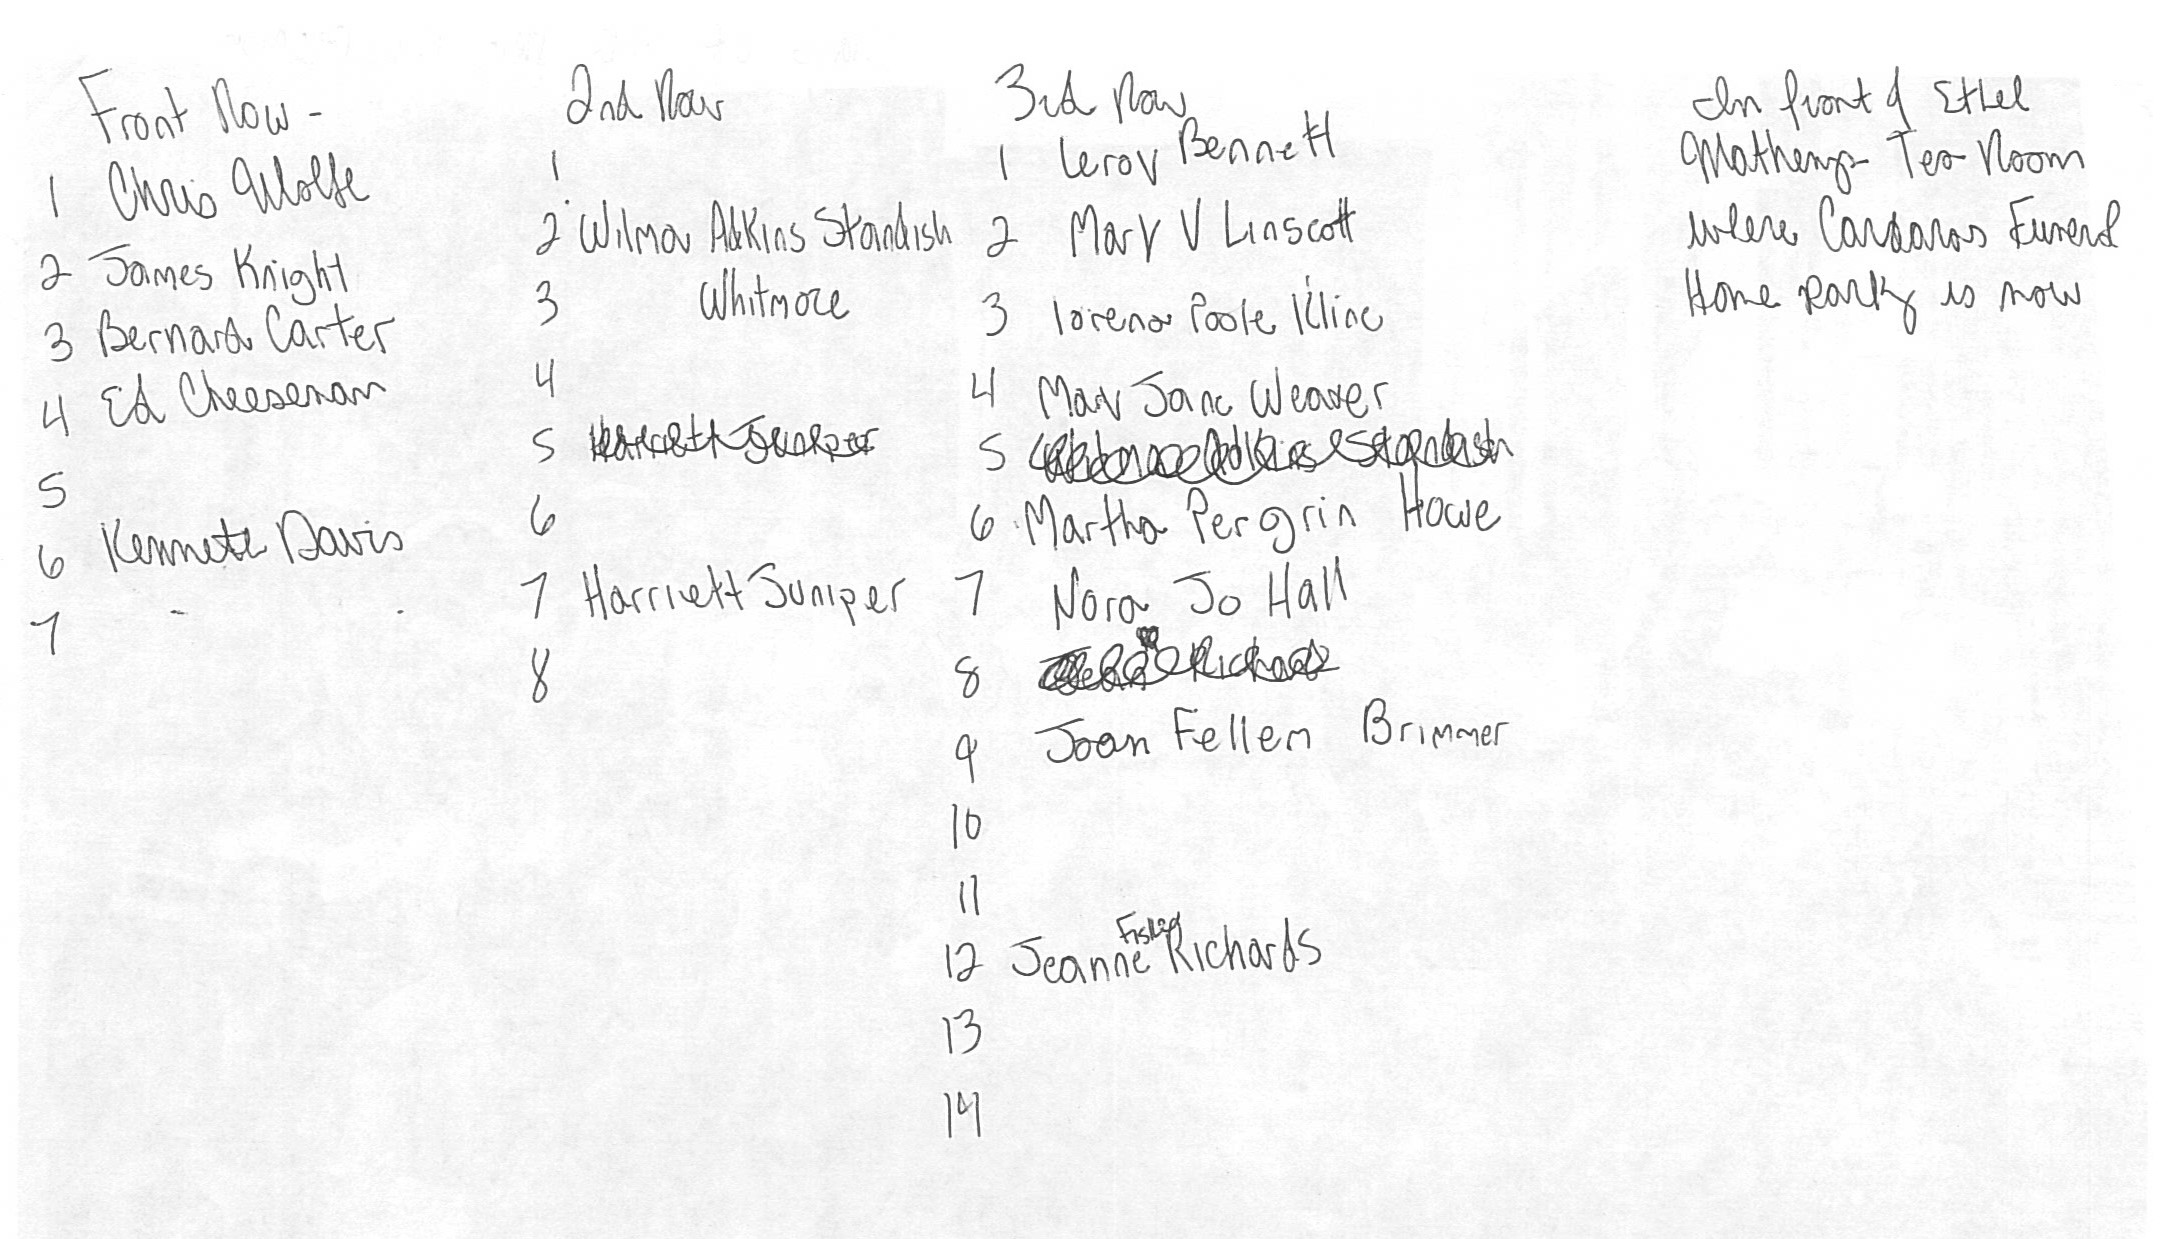 Front Row -
1 Chris Wolfe
2 James Knight
3 Bernard Carter
4 Ed Cheeseman
5
6 Kenneth Davis
7
2nd Row
1
2 Wilma Adkins Standish
3 Whitmore
4
5 Harriett Juniper
6
7 Harriett Juniper
8
3rd Row
1 Leroy Bennett
2 Mary V Linscott
3 Lorena Poole Kline
4 Mary Jane Weaver
5 Wilma Adkins Standish
6 Martha Pergrin Howe
7 Nora Jo Hall
8 Richards
9 Joan Fellem Brimmer
10
11
12 Jeanne Fisher Richards
13
14
In front of Ethel
Matheny Tea Room
where Cardaras Funeral
Home park is now